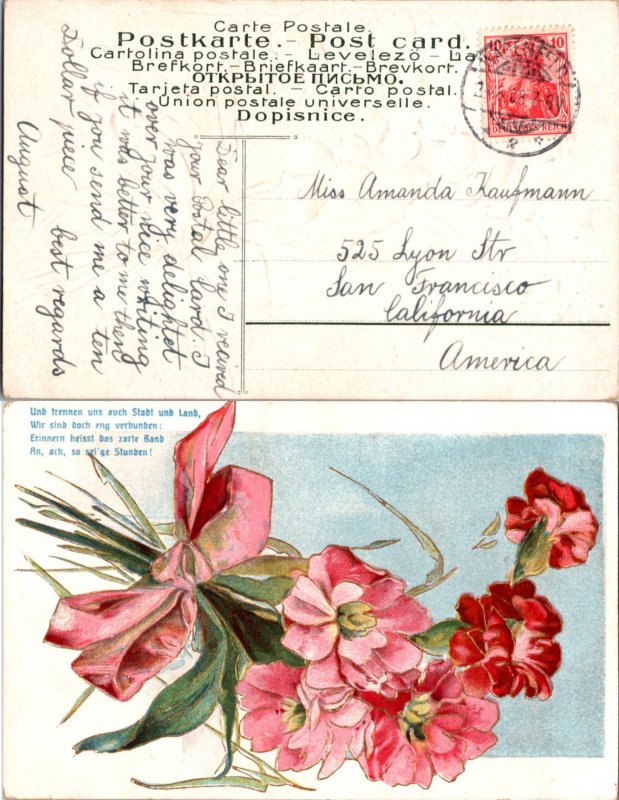 Carte Postale.
Postkarte. - Post card.
Cartolina postale. - Levelező - La
Brefkort. - Briefkaart. - Brevkort.
ОТКРЫТОЕ ПИСЬМО.
Tarjeta postal. - Carto postal.
Union postale universelle.
Dopisnice.
10 10
DEUTSCHES REICH
Dear little one I receivd
your Postal Card. I
was very delightet
over your nice writing
it was better to me then
if you send me a ten
Dollar piece best regards
August
Miss Amanda Kaufmann
525 Lyon Str
San Francisco
California
America
Und trennen uns auch Stadt und Land,
Wir sind doch eng verbunden;
Erinnern heisst das zarte Band
An, ach, so sel'ge Stunden!